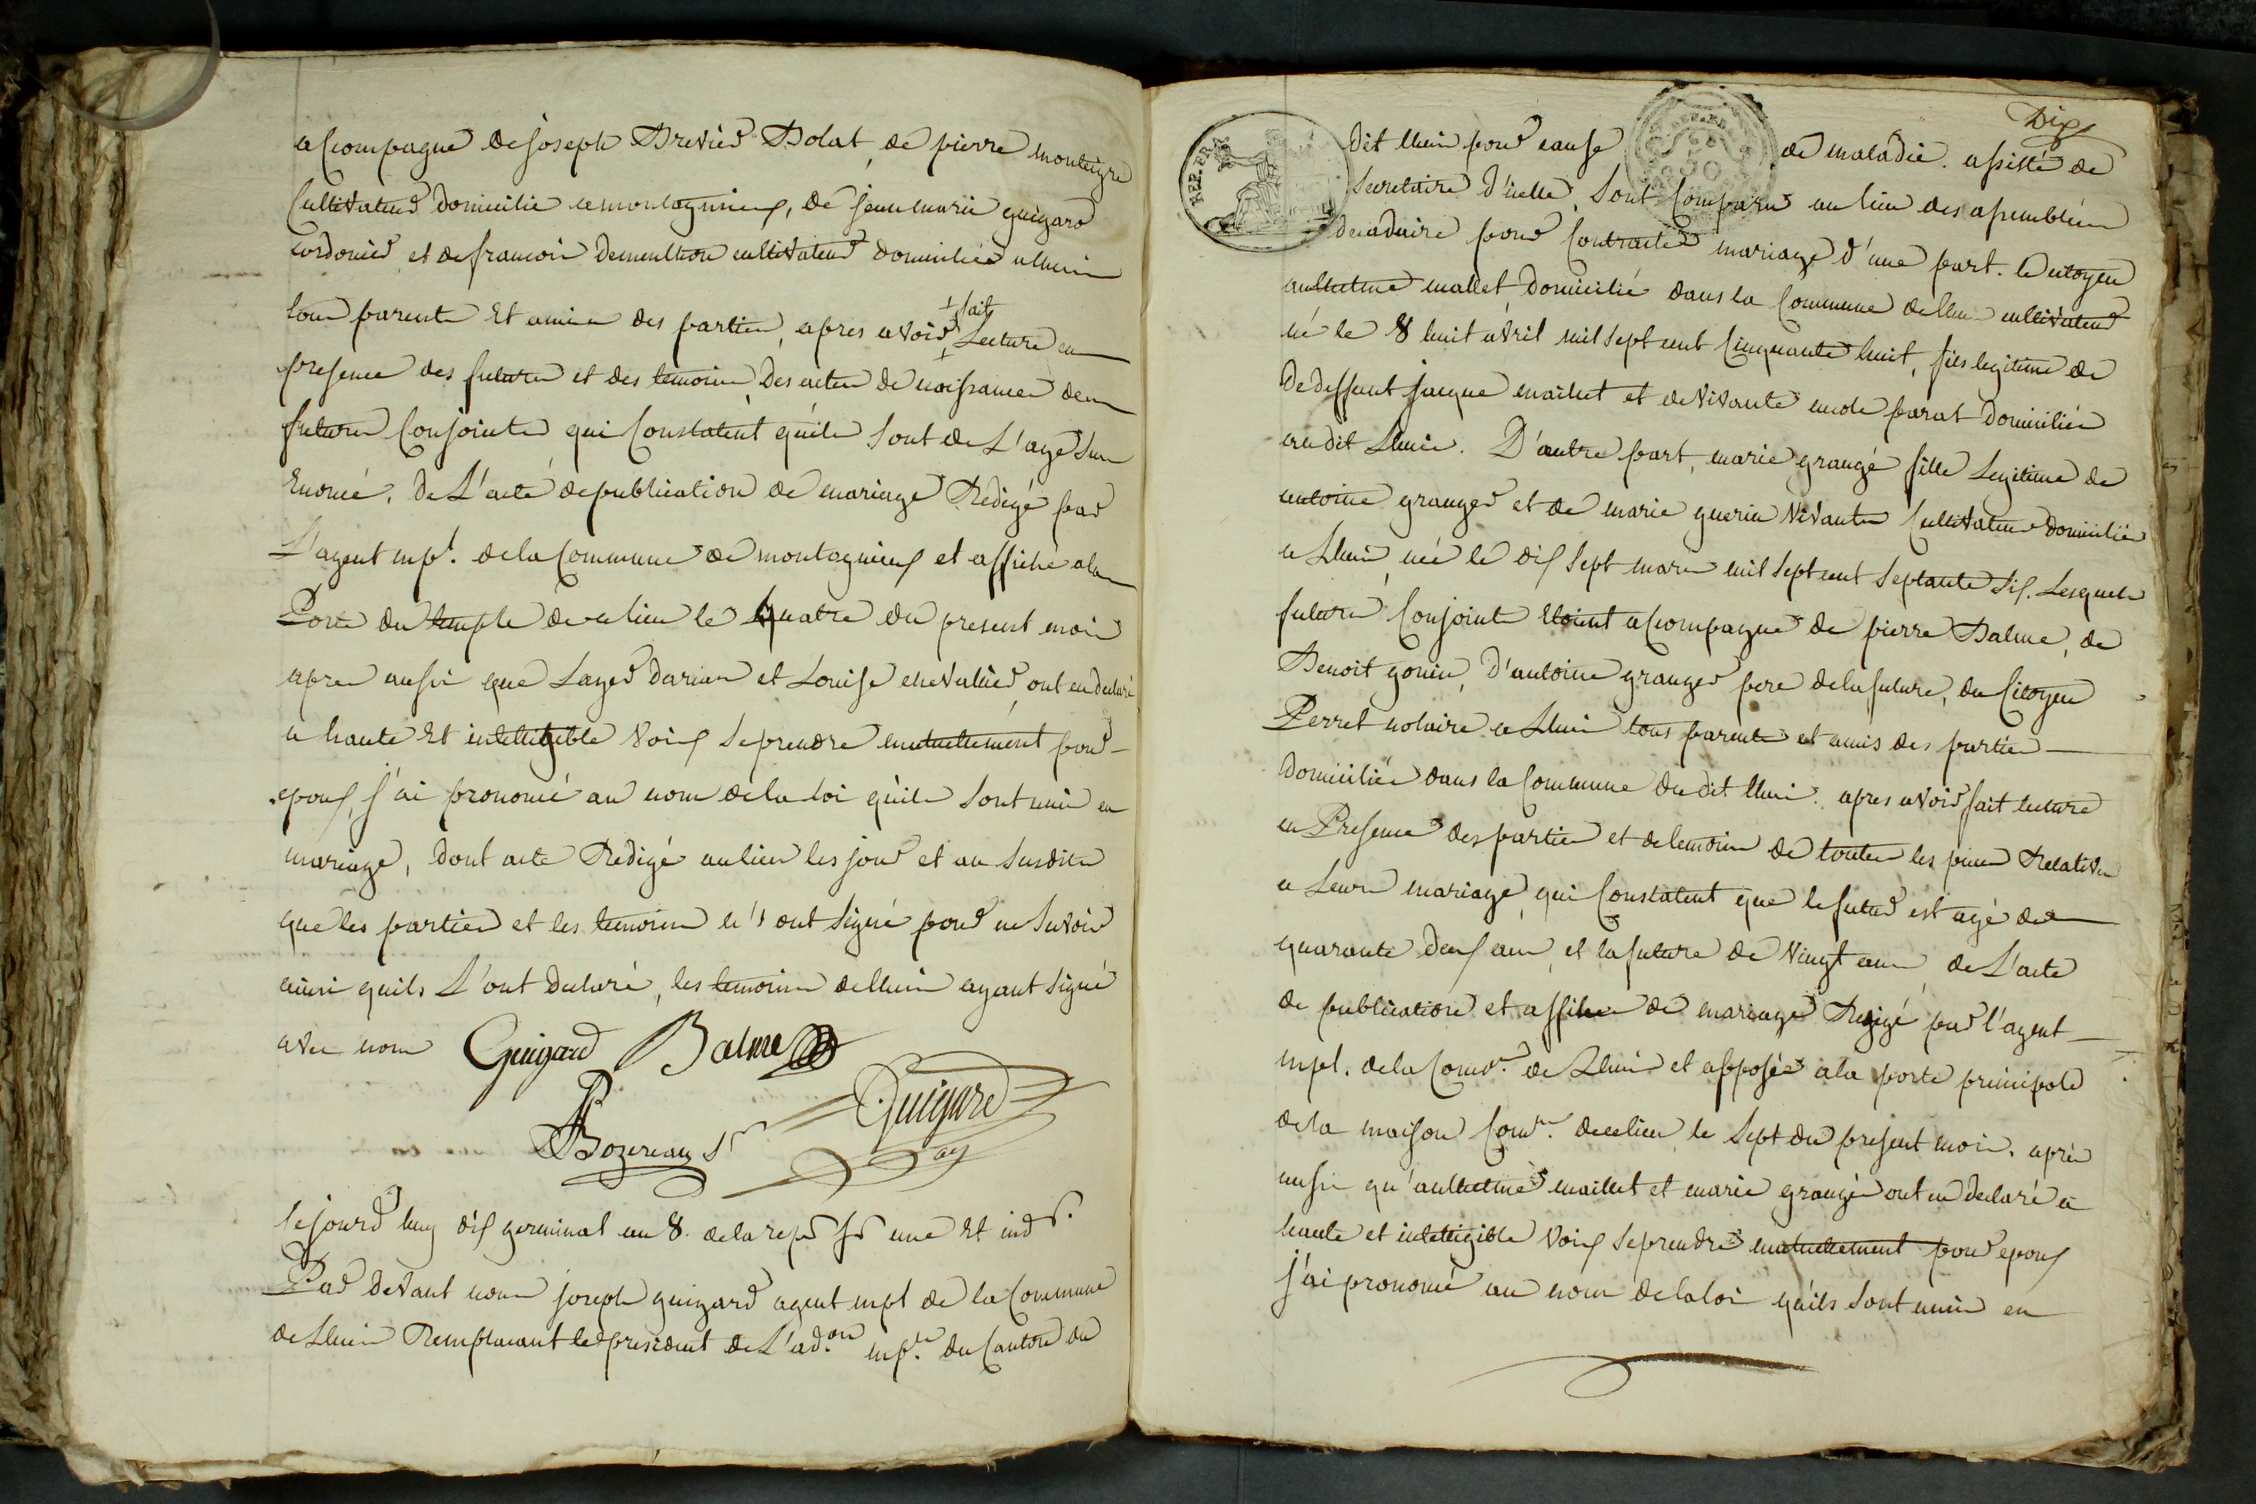 acompagné de joseph Brevier Bolat, de pierre
Cultivateur domicilié a montagnieux, de jean marie guigard
cordonier et de francois cultivateur domiciliés a lhuis
tous parents Et amis des parties, apres avoir + fait + Lecture en
presence des futurs et des temoins des actes de naissance des
futurs Conjoints qui Constatent quils sont de L'age sus
Enoncé, de L'acte de publication de mariage Redigé par
L'agent mpl. de la Commune de montagnieux et affiché a la
Porte du temple de ce lieu le quatre du present mois
apres aussi que et Louise chevalier ont eu declaré
a haute Et intelligible Voix se prendre mutuellement pour
epoux, j'ai prononcé au nom de la loi quils sont unis en
mariage, dont acte Redigé au lieu les jour et an susdits
que les parties et les temoins n'ont signé pour ne savoir
ainsi quils L'ont declaré, les temoins de lhuis ayant signé
avec nous Guigard Balme
Guigard
Bozereau Sre
ag
Cejourd'huy dix germinal an 8. de la repe fse une Et indle.
Par devant nous joseph guigard agent mpl de la Commune
de Lhuis Remplacant le president de L'adon mple du Canton du
Dix
REP. FRA.
50
dit lhuis pour cause de maladie. assisté de
Secretaire d'icelle. Sont Comparus au lieu des assemblées
decadaire pour Contracter mariage d'une part. le citoyen
anthelme mallet, domicilié dans la Commune de lhuis cultivateur
né le 8 huit avril mil sept cent Cinquante huit, fils legitime de
De deffunt jacque maillet et de vivante parat domiciliés
au dit Lhuis. D'autre part, marie grangé fille Legitime de
antoine granger et de marie guerin vivants Cultivateurs domiciliés
a Lhuis née le dix sept mars mil sept cent septante six. Lesquels
futurs Conjoints étoient acompagné de pierre Balme, de
Benoit gonin, D'antoine granger pere de la future, du Citoyen
Perret notaire a Lhuis tous parents et amis des parties
domiciliés dans la Commune du dit lhuis. apres avoir fait lecture
en Presence des parties et de temoins de toutes les pieces Relatives
a Leurs mariage qui Constatent que le futur est agé de
quarante deux ans, et la future de vingt ans, de L'acte
de publication et affiche de mariage Redigé par l'agent
mpl. de la Comne. de Lhuis et apposés a la porte principale
de la maison Comne. de ce lieu le sept du present mois. après
aussi qu'anthelme maillet et marie grangés ont eu declaré a
haute et intelligible Voix se prendre mutuellement pour epoux
j'ai prononcé au nom de la loi quils sont unis en